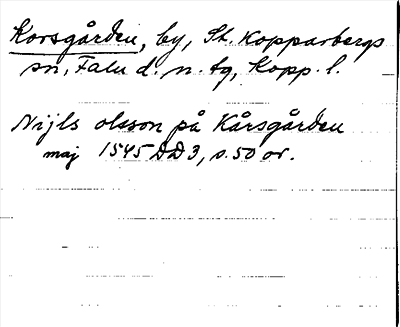 Korsgården, by, St. Kopparbergs
sn, Falu d. n. tg, Kopp. l.
Nijls olsson på Kårsgården
maj 1545 DD3, s. 50 or.